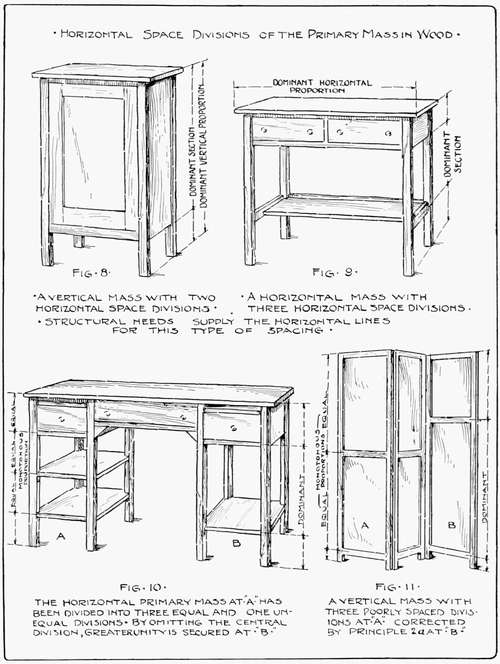 · HORIZONTAL SPACE DIVISIONS OF THE PRIMARY MASS IN WOOD ·
DOMINANT HORIZONTAL
PROPORTION
DOMINANT SECTION
DOMINANT VERTICAL PROPORTION
DOMINANT
SECTION
FIG · 8 ·
FIG · 9 ·
· A VERTICAL MASS WITH TWO
HORIZONTAL SPACE DIVISIONS ·
· A HORIZONTAL MASS WITH
THREE HORIZONTAL SPACE DIVISIONS ·
· STRUCTURAL NEEDS SUPPLY THE HORIZONTAL LINES
FOR THIS TYPE OF SPACING ·
EQUAL EQUAL EQUAL
MONOTONOUS
PROPORTIONS
DOMINANT
A
B
MONOTONOUS
EQUAL PROPORTIONS EQUAL
DOMINANT
A
B
FIG · 10 ·
FIG · 11 ·
THE HORIZONTAL PRIMARY MASS AT "A" HAS
BEEN DIVIDED INTO THREE EQUAL AND ONE UN-
EQUAL DIVISIONS · BY OMITTING THE CENTRAL
DIVISION, GREATER UNITY IS SECURED AT "B" ·
A VERTICAL MASS WITH
THREE POORLY SPACED DIVIS-
IONS AT "A" CORRECTED
BY PRINCIPLE 2a AT "B" ·